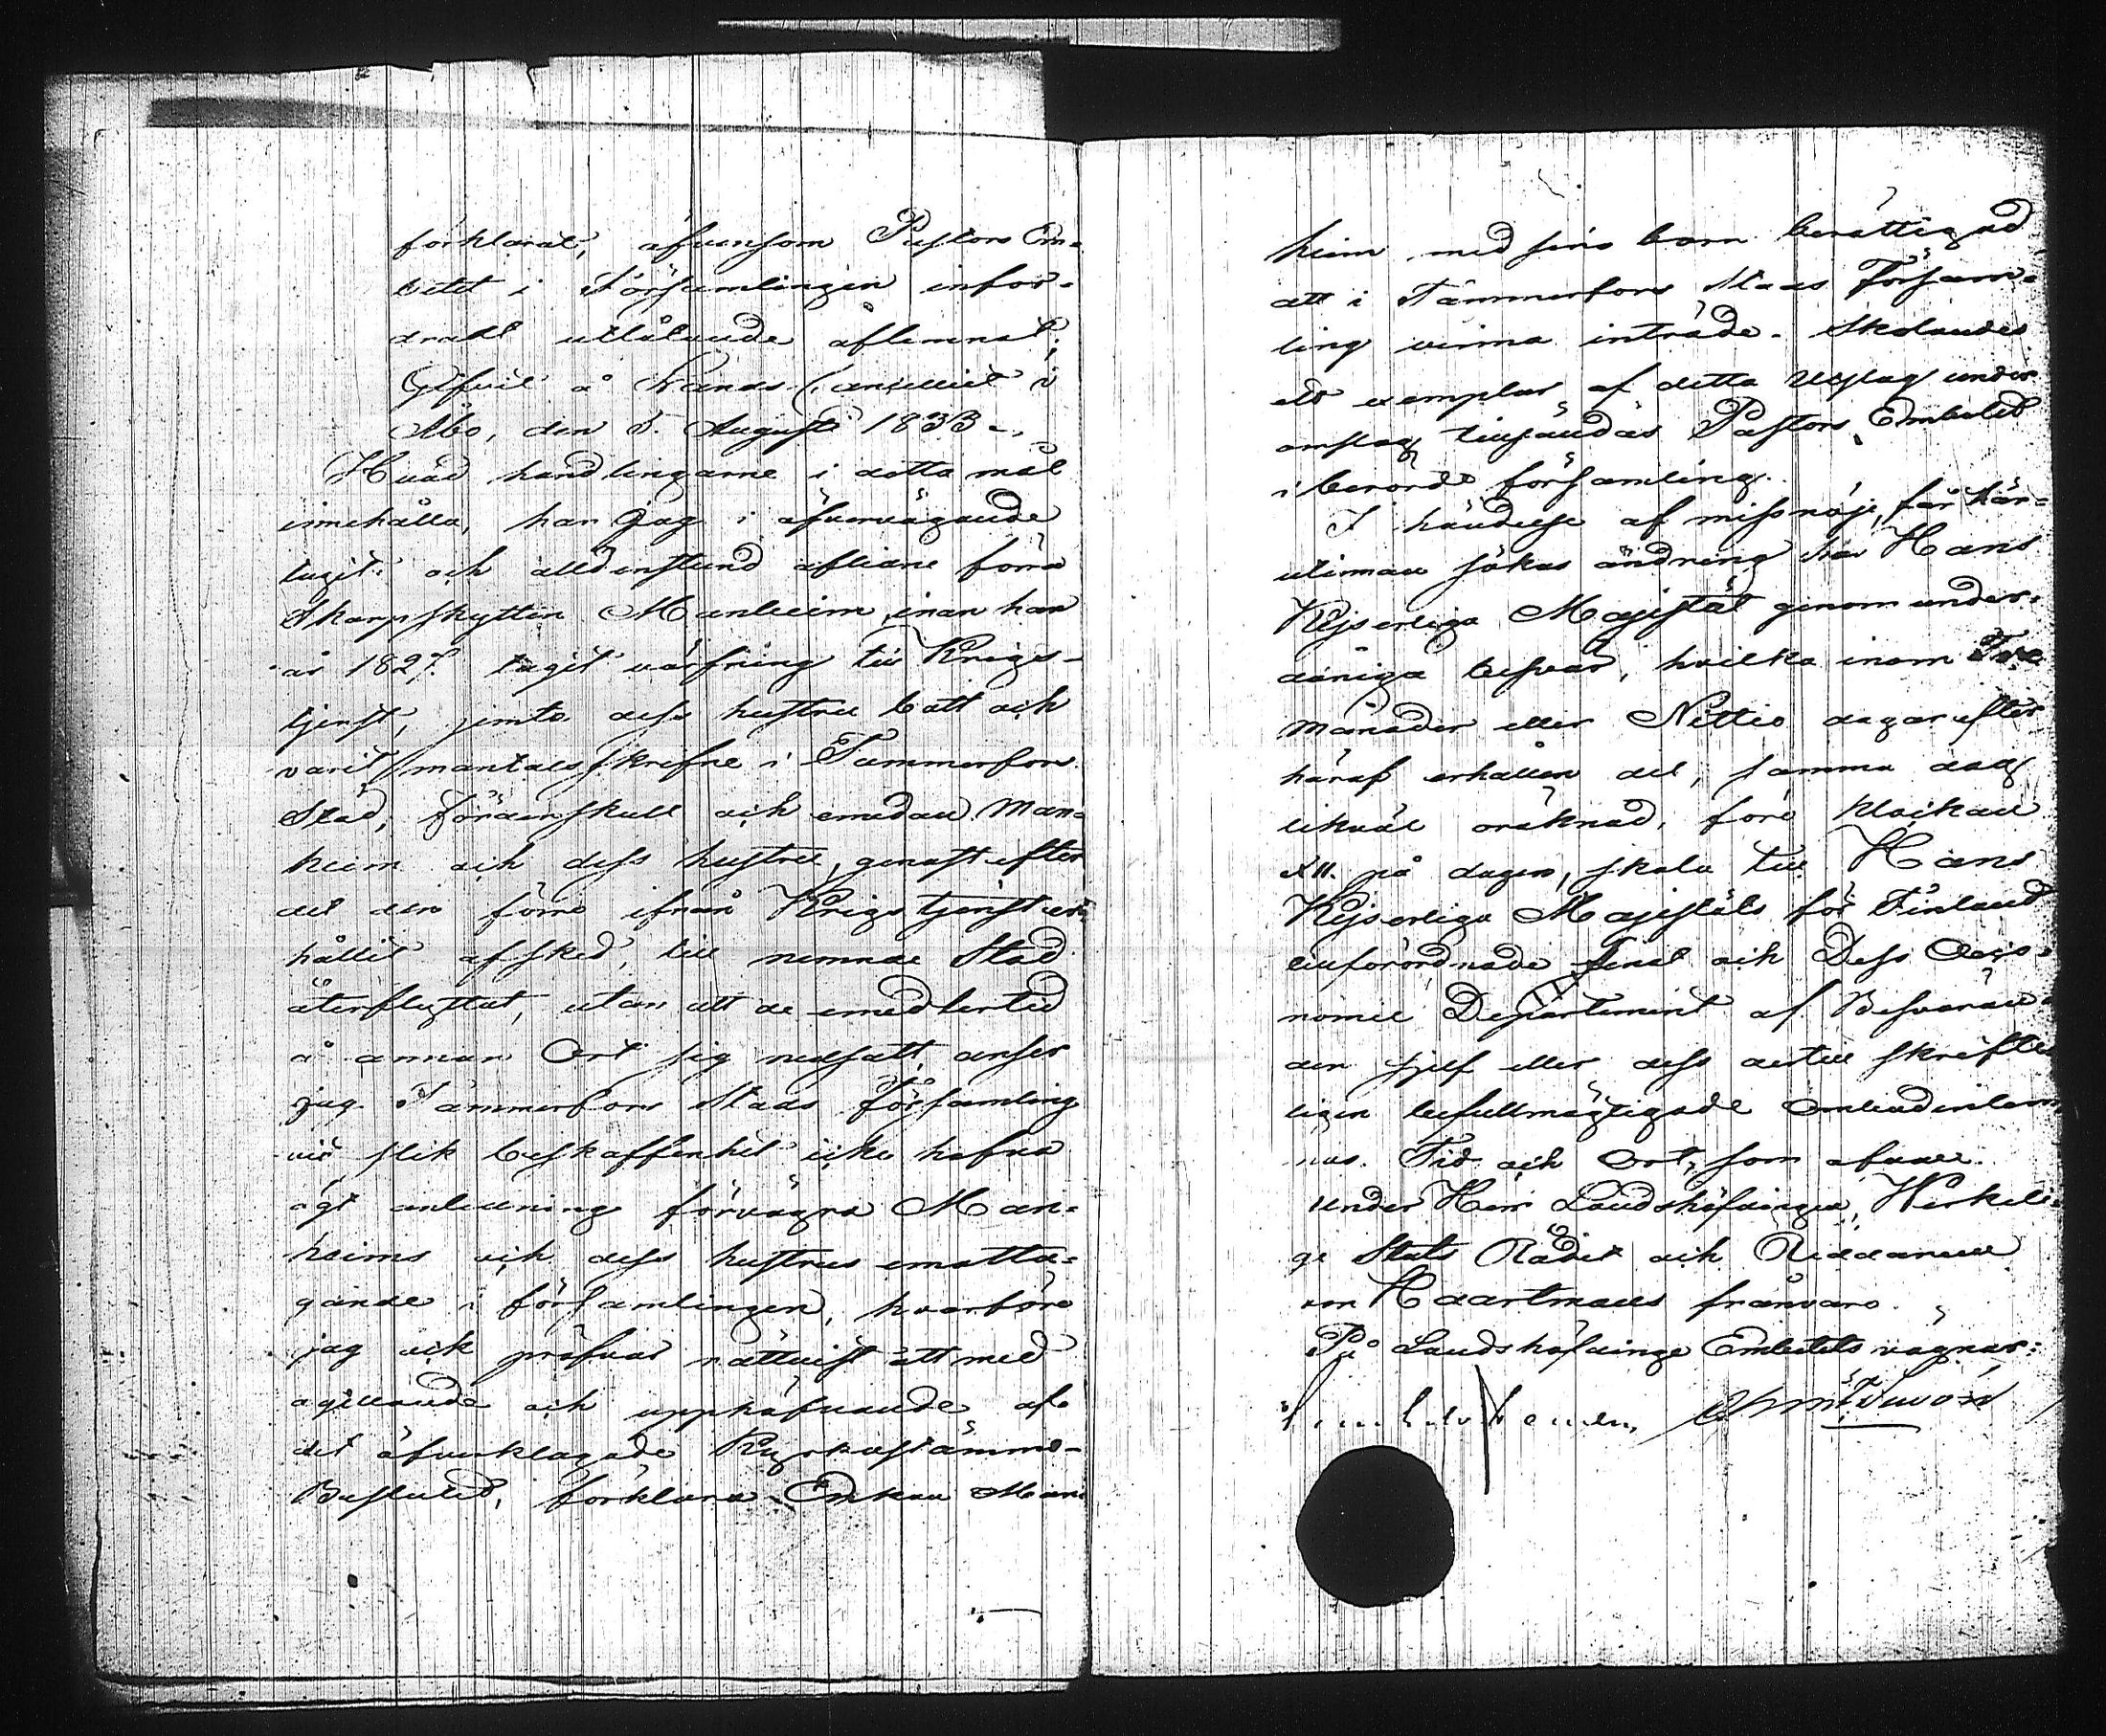 förklarat, äfvensom Pastors Em-
betet i Församlingen infor-
dradt utlåtande aflemnat;
Gifvit å Lands Cancelliet i
Åbo, den 5. Augusti 1833.
Hvad handlingarne i detta mål
innehålla, har Jag i öfvervägande
tagit: och alldenstund aflidne förra
Skarpskytten Manheim, innan han
år 1827. tagit värfning till Krigs-
tjenst, jemte dess hustru bott och
varit mantalsskrifne i Tammerfors
Stad, fördenskull och emedan Man-
heim och dess hustru, genast efter
det den förre ifrån Krigstjensten er-
hållit afsked, till nemnde Stad
återflyttat, utan att de emedlertid
å annan Ort sig nedsatt, anser
jag Tammerfors Stads Församling
vid slik beskaffenhet icke hafva
ägt anledning förvägra Man-
heims och dess hustrus emotta-
gande i församlingen, hvarföre
jag ock pröfvar rättvist att med
ogillande och upphäfvande af
det öfverklagade Kyrkostämmo-
Beslutet, förklara Enkan Man-
heim med sina barn berättigad
att i Tammerfors Stads Försam-
ling vinna inträde. Skolandes
ett exemplar af detta Utslag under
omslag tillsändas Pastors Embetet
i berörde församling.
I händelse af missnöje, får här-
utinnan sökas ändring hos Hans
Kejserliga Majestät genom under-
dåniga besvär, hvilka inom Tre
månader eller Nittio dagar efter
häraf erhållen del, samma dag
likväl oräknad, före klockan
XII. på dagen, skola till Hans
Kejserliga Majestäts för Finland
tillförordnade Senat och Dess Oeco-
nomie Departement af Besväran-
den sjelf eller dess dertill skrifte-
ligen befullmägtigade ombud inlem-
nas. Tid och Ort, som ofvan.
Under Herr Landshöfdingen, Verkeli-
ge Stats Rådet och Riddarens
von Haartmans frånvaro.
På Landshöfdinge Embetets vägnar: